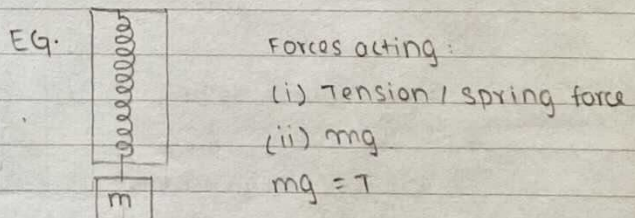 EG.
Forces acting:
(i) Tension / spring force
(ii) mg
mg = T
m